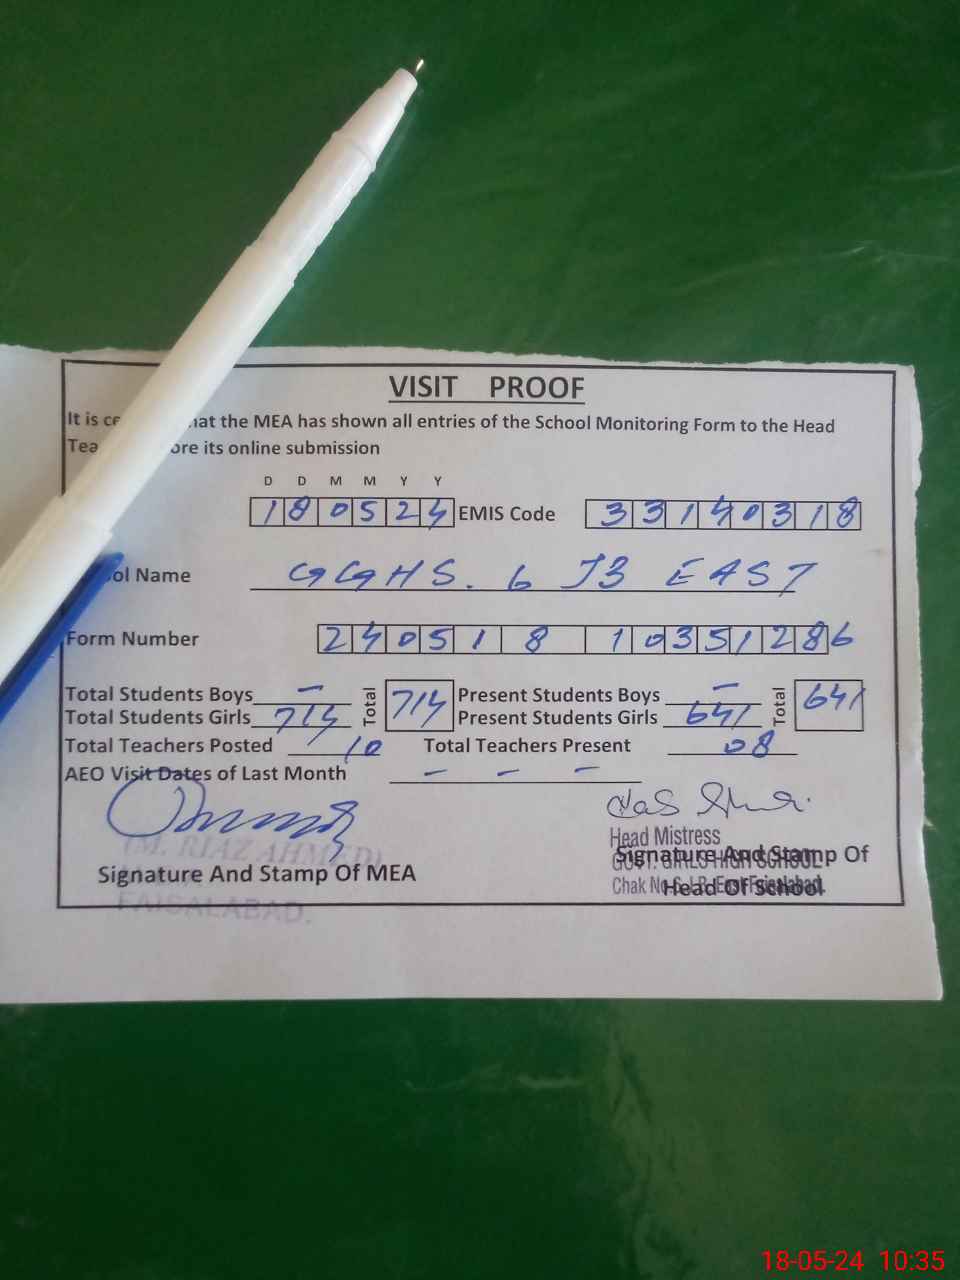 VISIT PROOF
It is ce hat the MEA has shown all entries of the School Monitoring Form to the Head
Tea ore its online submission
D D M M Y Y
180524 EMIS Code 33140318
ol Name GGHS. 6 JB EAST
Form Number 240518 10351286
Total Students Boys - Total 714 Present Students Boys - Total 641
Total Students Girls 714 Present Students Girls 641
Total Teachers Posted 10 Total Teachers Present 08
AEO Visit Dates of Last Month - - -
(M. RIAZ AHMED)
Signature And Stamp Of MEA
FAISALABAD.
Head Mistress
Signature And Stamp Of
GOVT. GIRLS HIGH SCHOOL
Head Of School
Chak No J.B. East Faisalabad.
18-05-24 10:35